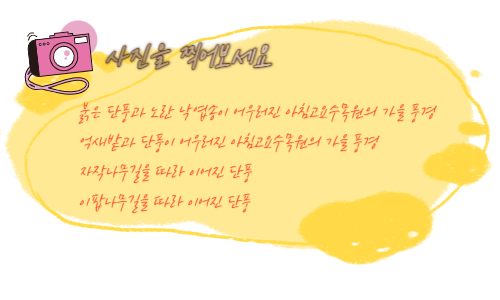 사진을 찍어보세요
붉은 단풍과 노란 낙엽송이 어우러진 아침고요수목원의 가을 풍경
억새밭과 단풍이 어우러진 아침고요수목원의 가을 풍경
자작나무길을 따라 이어진 단풍
이팝나무길을 따라 이어진 단풍